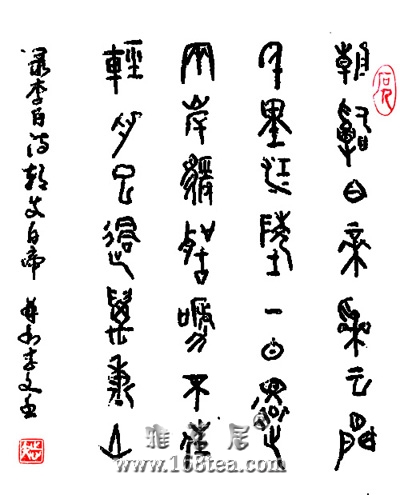 朝辭白帝采云間
千里江陵一日還
兩岸猿聲啼不住
輕舟已過萬重山
录李白詩朝发白帝 李文
雅居
www.168tea.com